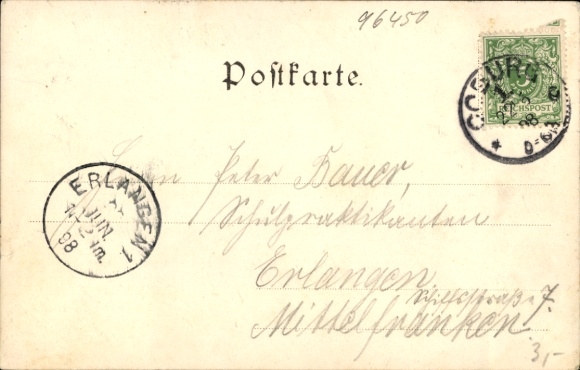 96450
Postkarte.
COBURG
REICHSPOST
5
98
ERLANGEN 1.
JUN.
98
Herrn Peter Bauer,
Schulpraktikanten
Erlangen
Schillstraße 7.
Mittelfranken.
3,-